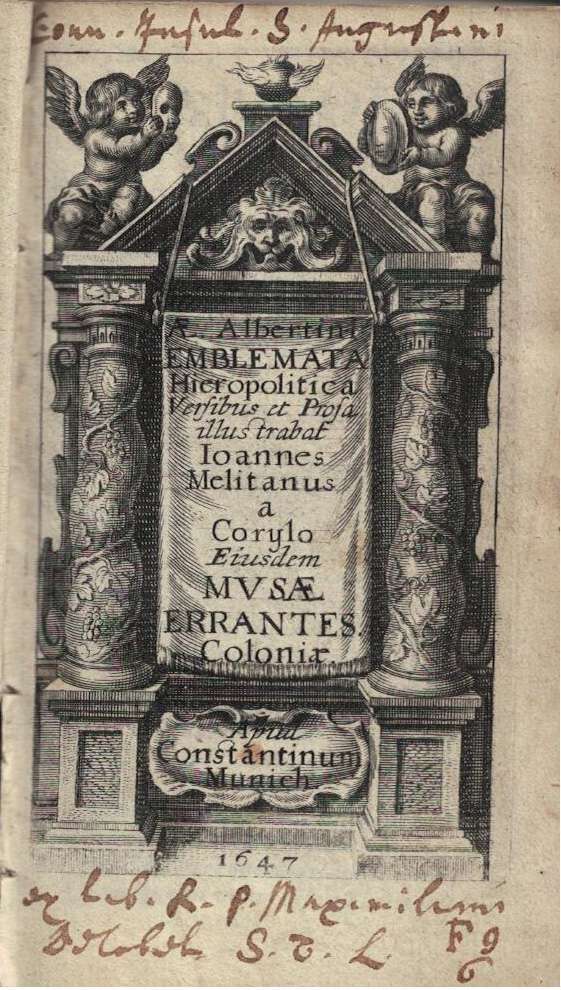 Conv. Insul. S. Augustini
Æ. Albertini
EMBLEMATA
Hieropolitica
Versibus et Prosa
illustrabat
Ioannes
Melitanus
a
Corylo
Eiusdem
MVSÆ
ERRANTES.
Coloniæ.
Apud
Constantinum
Munich
1647
ex lib. R. P. Maximiliani
S. T. L. F 9
6